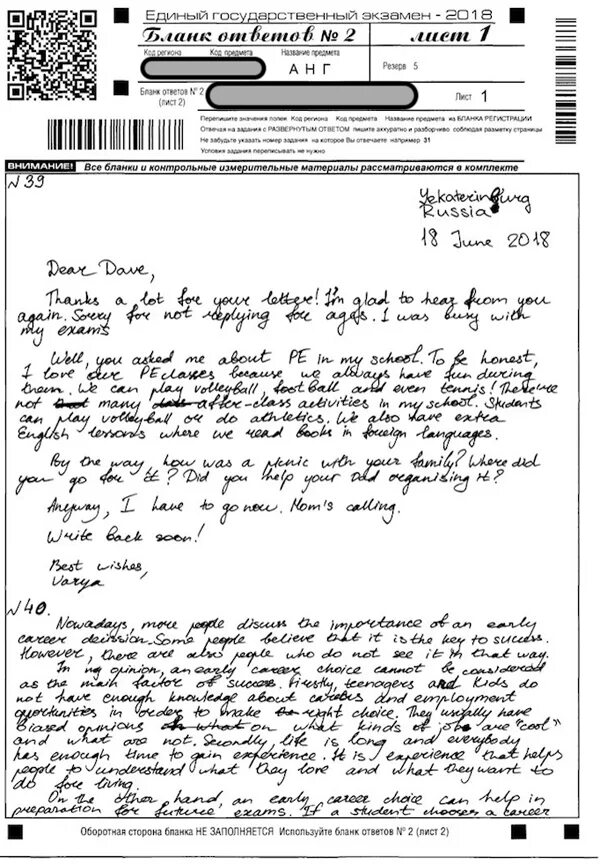 Единый государственный экзамен - 2018
Бланк ответов № 2 лист 1
Код региона Код предмета Название предмета
АНГ
Резерв 5
Бланк ответов № 2 (лист 2)
Лист 1
Перепишите значения полей Код региона Код предмета Название предмета из БЛАНКА РЕГИСТРАЦИИ
Отвечая на задания с РАЗВЕРНУТЫМ ОТВЕТОМ пишите аккуратно и разборчиво соблюдая разметку страницы
Не забудьте указать номер задания на которое Вы отвечаете например 31
Условия задания переписывать не нужно
ВНИМАНИЕ! Все бланки и контрольные измерительные материалы рассматриваются в комплекте
N 39
Yekaterinburg
Russia
18 June 2018
Dear Dave,
Thanks a lot for your letter! I'm glad to hear from you
again. Sorry for not replying for ages. I was busy with
my exams
Well, you asked me about PE in my school. To be honest,
I love our PE classes because we always have fun during
them. We can play volleyball, football and even tennis! There are
not many after-class activities in my school. Students
can play volleyball or do athletics. We also have extra
English lessons where we read books in foreign languages.
By the way, how was a picnic with your family? Where did
you go for it? Did you help your Dad organising it?
Anyway, I have to go now. Mom's calling.
Write back soon!
Best wishes,
Varya
N 40.
Nowadays, more people discuss the importance of an early
career decision. Some people believe that it is the key to success.
However, there are also people who do not see it in that way.
In my opinion, an early career choice cannot be considered
as the main factor of success. Firstly, teenagers and kids do
not have enough knowledge about careers and employment
oportunities in order to make right choice. They usually have
biased opinions on what kinds of jobs are "cool"
and what are not. Secondly, life is long and everybody
has enough time to gain experience. It is experience that helps
people to understand what they love and what they want to
do for living.
On the other hand, an early career choice can help in
preparation for future exams. If a student chooses a career
Оборотная сторона бланка НЕ ЗАПОЛНЯЕТСЯ Используйте бланк ответов № 2 (лист 2)